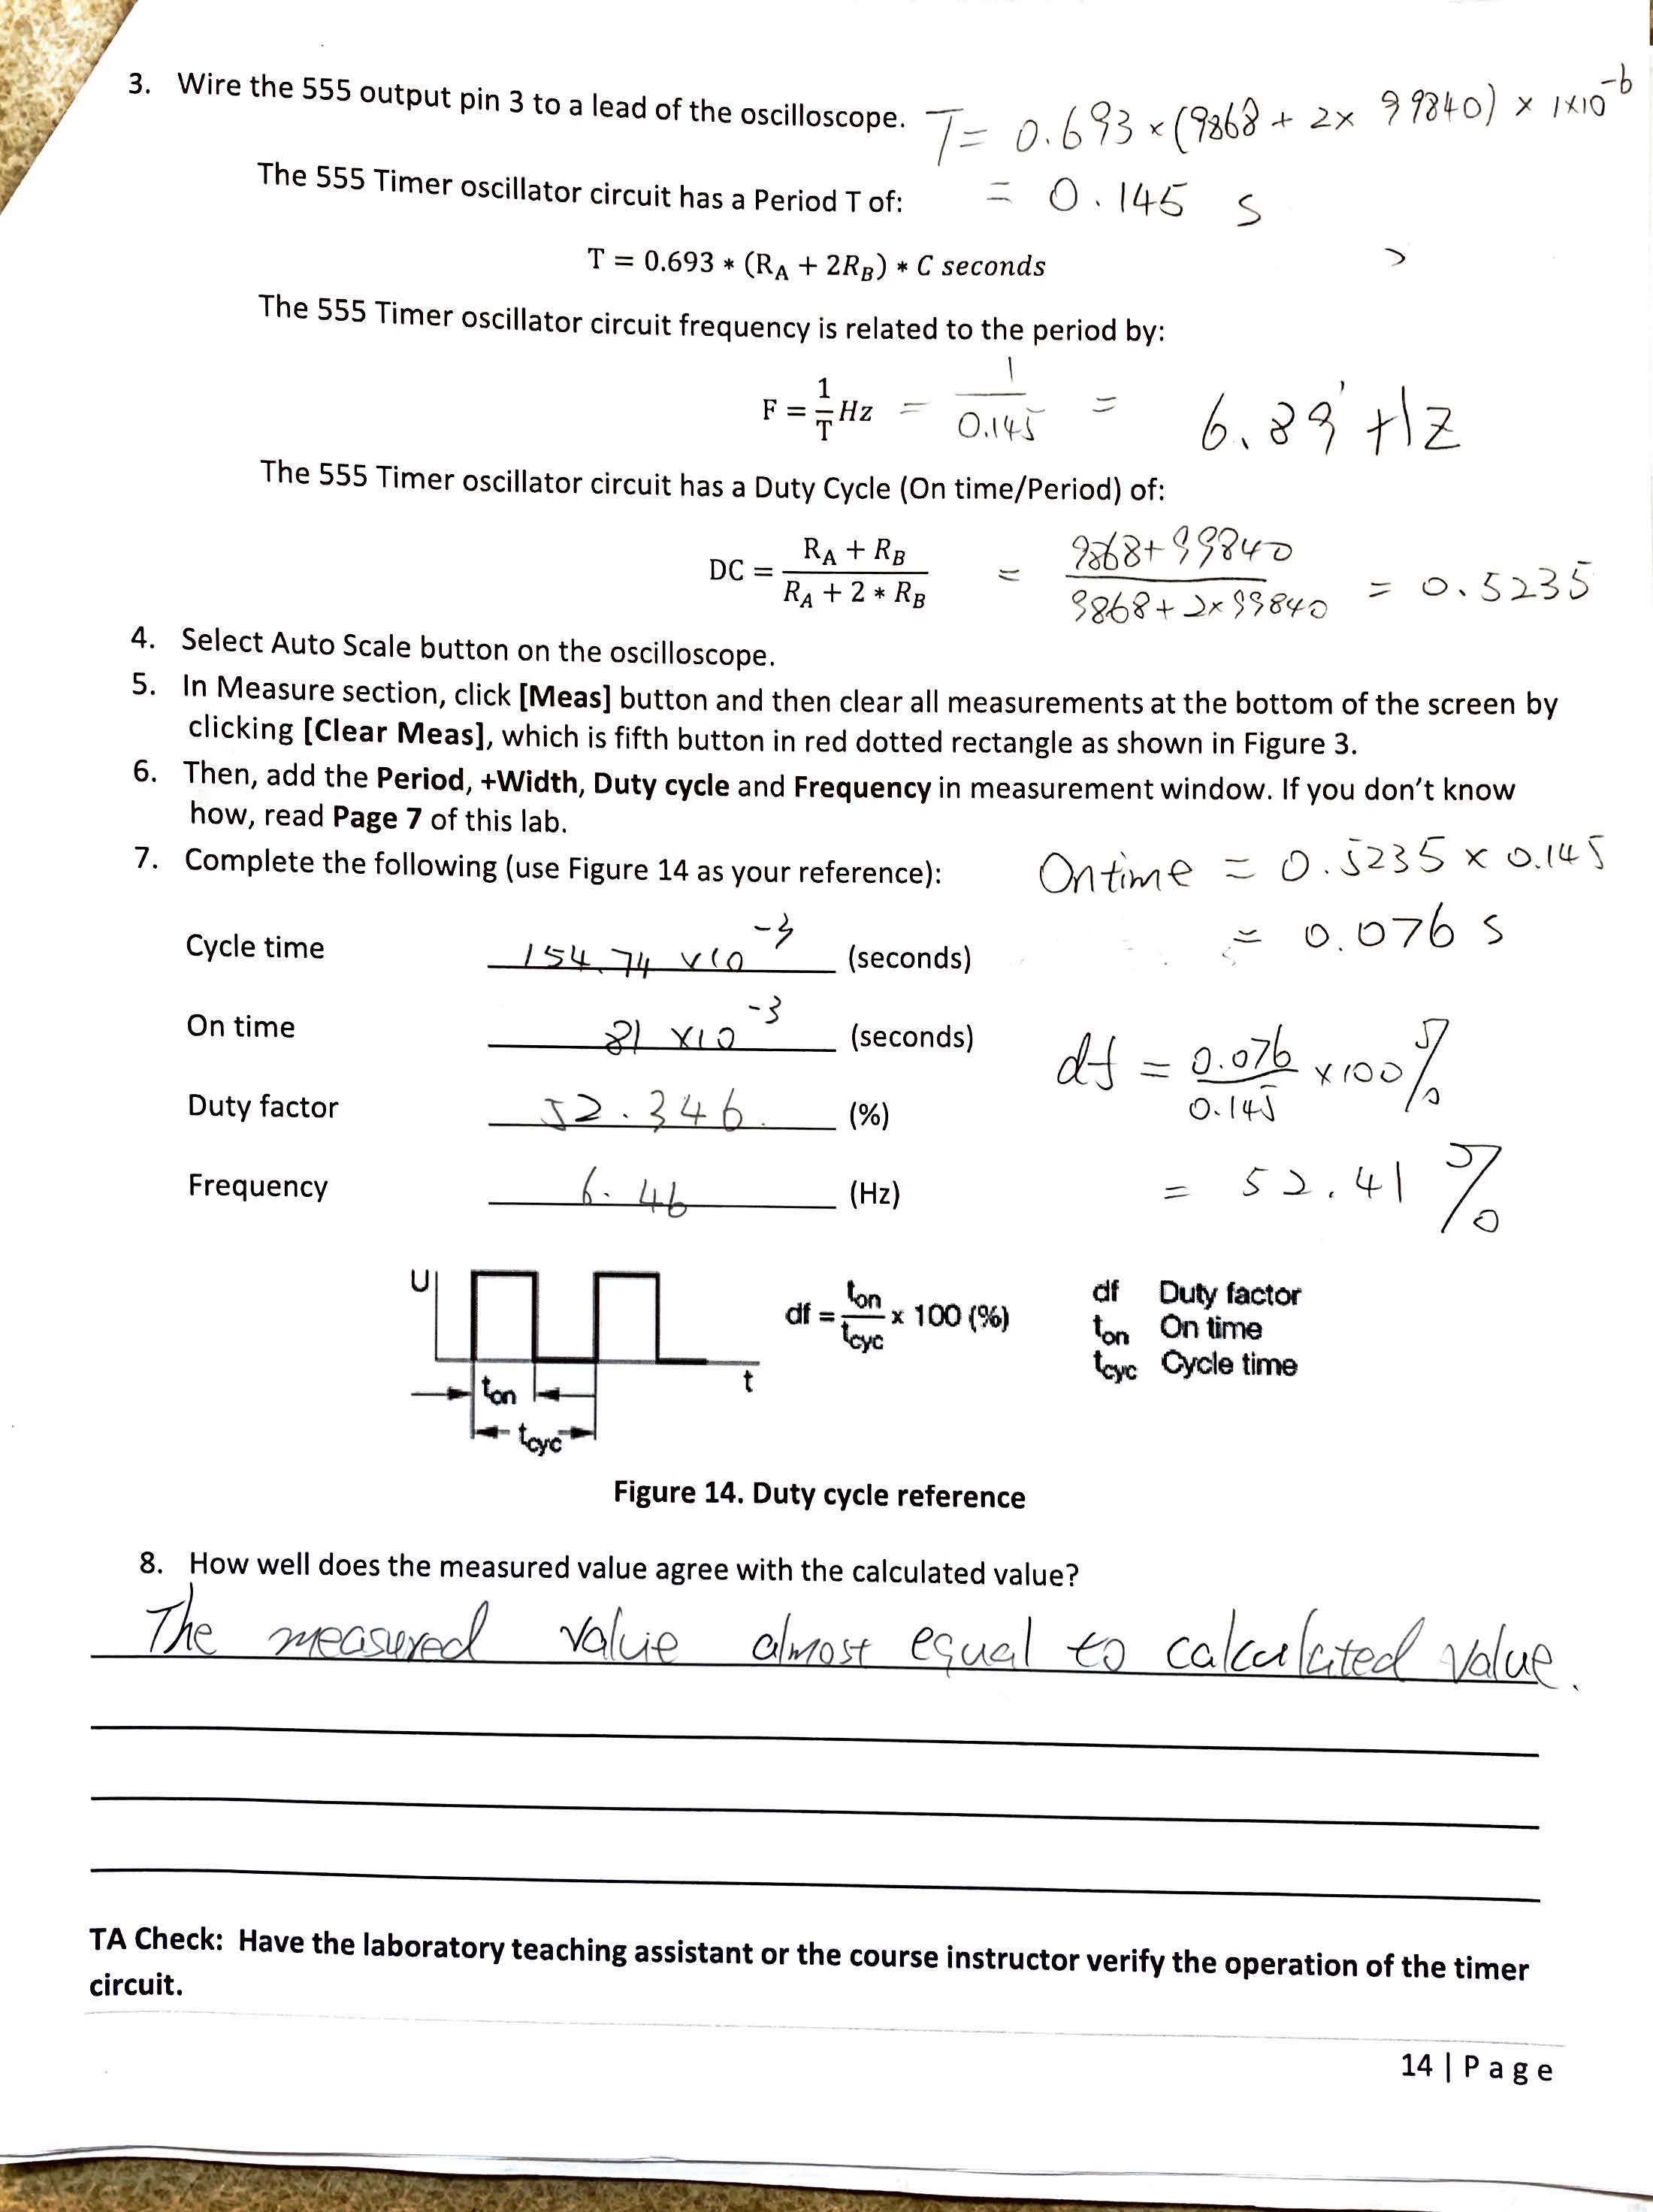 3. Wire the 555 output pin 3 to a lead of the oscilloscope. T = 0.693 × (9868 + 2× 99840) × 1×10⁻⁶
The 555 Timer oscillator circuit has a Period T of: = 0.145 s
T = 0.693 * (R_A + 2R_B) * C seconds
The 555 Timer oscillator circuit frequency is related to the period by:
F = 1/T Hz = 1/0.145 = 6.89 Hz
The 555 Timer oscillator circuit has a Duty Cycle (On time/Period) of:
DC = (R_A + R_B)/(R_A + 2 * R_B) = (9868+99840)/(9868+2×99840) = 0.5235
4. Select Auto Scale button on the oscilloscope.
5. In Measure section, click [Meas] button and then clear all measurements at the bottom of the screen by
clicking [Clear Meas], which is fifth button in red dotted rectangle as shown in Figure 3.
6. Then, add the Period, +Width, Duty cycle and Frequency in measurement window. If you don't know
how, read Page 7 of this lab.
7. Complete the following (use Figure 14 as your reference): On time = 0.5235 × 0.145
= 0.076 s
Cycle time 154.74 ×10⁻³ (seconds)
On time 81 ×10⁻³ (seconds)
df = 0.076/0.145 ×100%
Duty factor 52.346 (%)
Frequency 6.46 (Hz)
= 52.41 %
U
t_on
t_cyc
t
df = t_on/t_cyc x 100 (%)
df Duty factor
t_on On time
t_cyc Cycle time
Figure 14. Duty cycle reference
8. How well does the measured value agree with the calculated value?
The measured value almost equal to calculated value.
TA Check: Have the laboratory teaching assistant or the course instructor verify the operation of the timer
circuit.
14 | Page